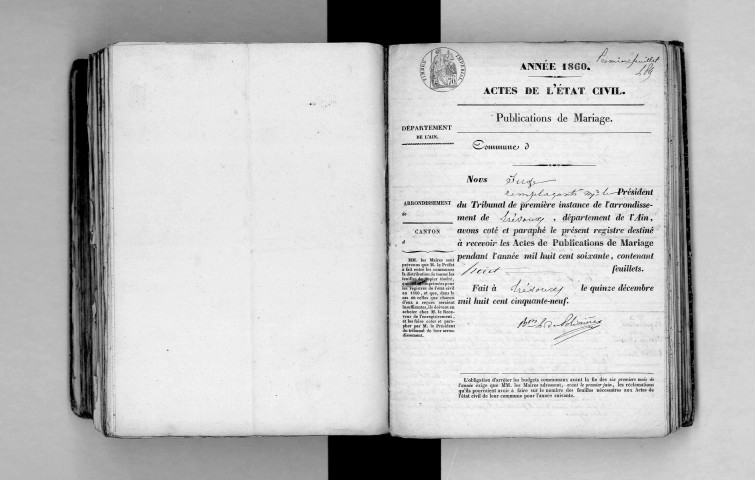 TIMBRE IMPERIAL
Premier feuillet
ANNÉE 1860.
ACTES DE L'ÉTAT CIVIL.
Publications de Mariage.
DÉPARTEMENT
DE L'AIN.
Commune d
Nous Juge
remplaçant Mr le Président
ARRONDISSEMENT
de
CANTON
d
du Tribunal de première instance de l'arrondisse-
ment de Trévoux, département de l'Ain,
avons coté et paraphé le présent registre destiné
à recevoir les Actes de Publications de Mariage
pendant l'année mil huit cent soixante, contenant
feuillets.
Fait à Trévoux le quinze décembre
mil huit cent cinquante-neuf.
MM. les Maires sont
prévenus que M. le Préfet
a fait entre les communes
la distribution de toutes les
feuilles de papier timbré,
imprimées pour
les registres de l'état civil
en 1860, et que, dans le
cas où celles que chacun
d'eux a reçues seraient
insuffisantes, ils doivent en
acheter chez M. le Rece-
veur de l'enregistrement,
et les faire coter et para-
pher par M. le Président
du tribunal de leur arron-
dissement.
L'obligation d'arrêter les budgets communaux avant la fin des six premiers mois de
l'année exige que MM. les Maires adressent, avant le premier juin, les réclamations
qu'ils pourraient avoir à faire sur le nombre des feuilles nécessaires aux Actes de
l'état civil de leur commune pour l'année suivante.